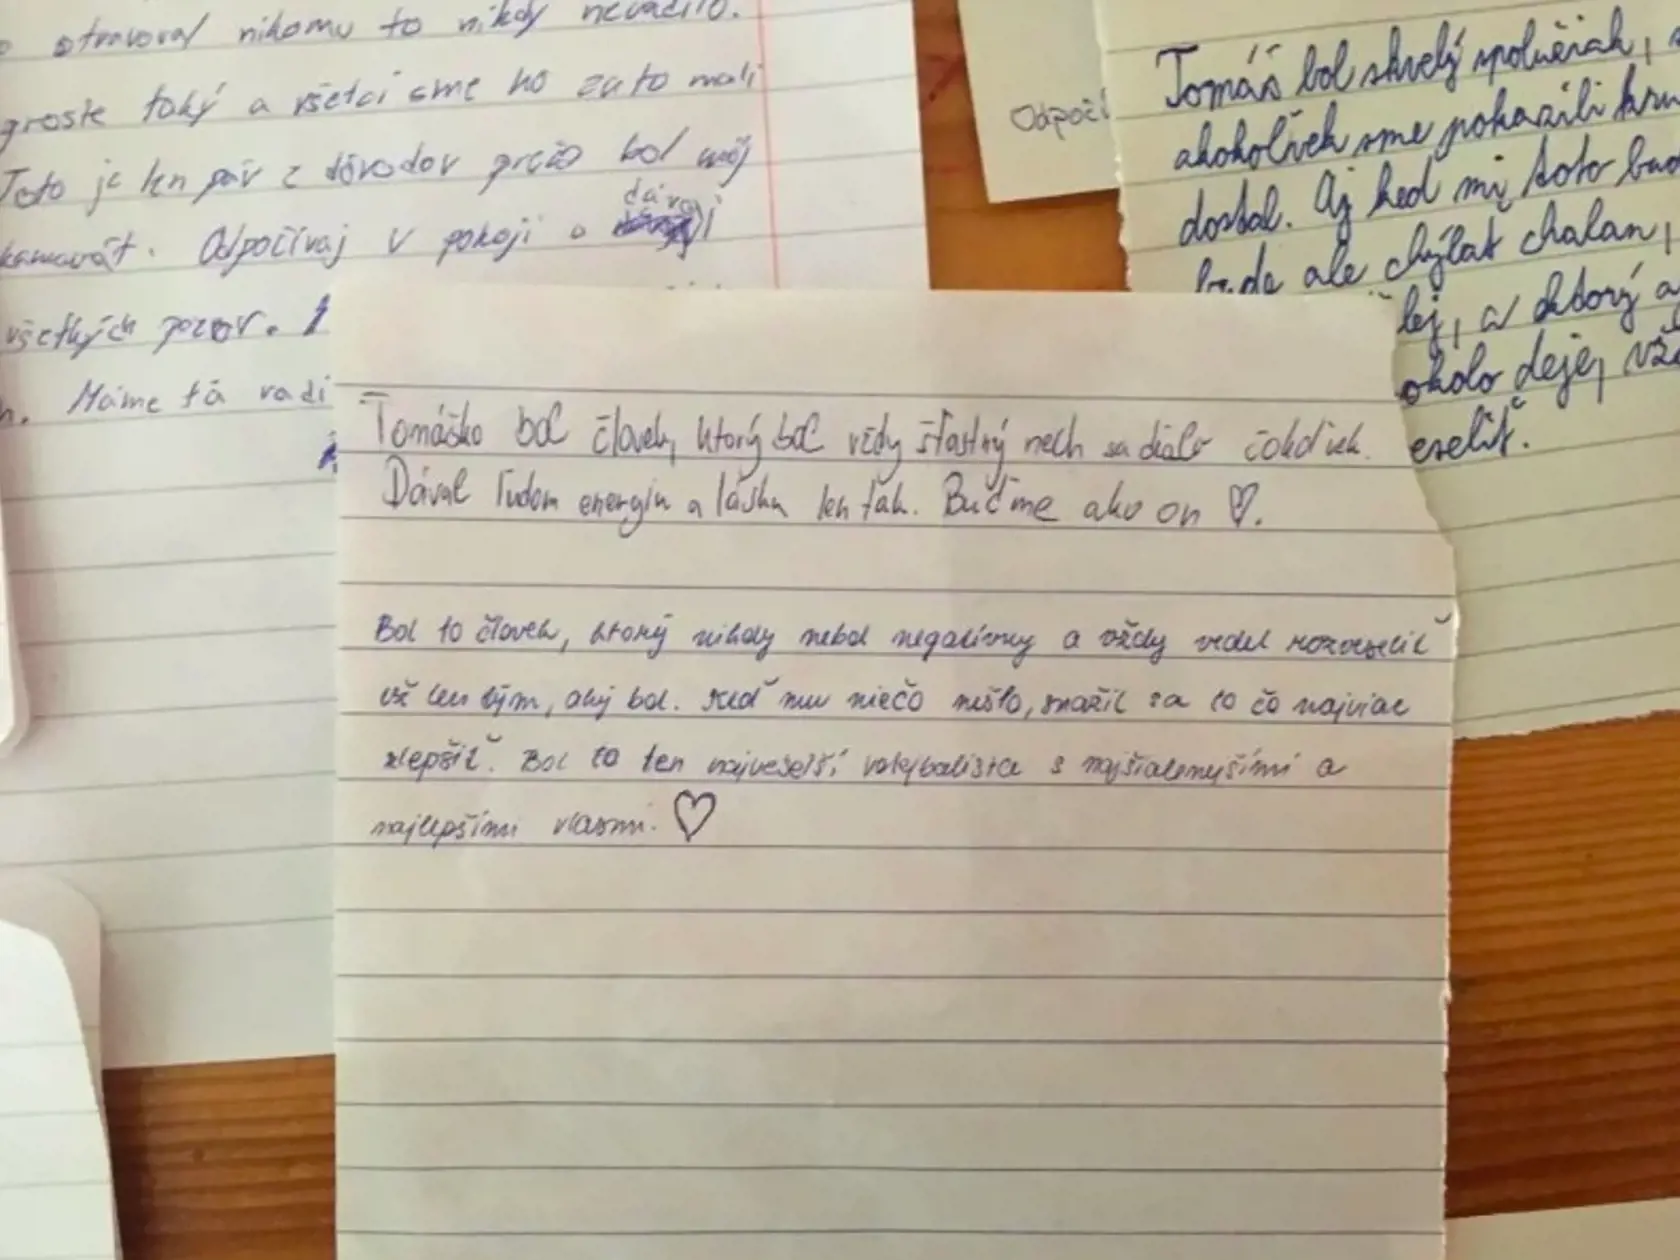 otravoval nikomu to nikdy nevadilo.
proste taký a všetci sme ho za to mali
Toto je len pár z dôvodov prečo bol môj
kamarát. Odpočívaj v pokoji a dávaj
všetkých pozor.
Máme ťa radi
Odpočí
Tomáš bol skvelý spolužiak,
akokoľvek sme pokazili
dostal. Aj keď mi toto
bude ale chýbať chalan,
a ktorý
okolo deje,
Tomáško bol človek, ktorý bol vždy šťastný nech sa dialo čokoľvek.
Dával ľuďom energiu a lásku len tak. Buďme ako on ♡.
Bol to človek, ktorý nikdy nebol negatívny a vždy vedel rozveseliť
už len tým, aký bol. Keď mu niečo nešlo, snažil sa to čo najviac
zlepšiť. Bol to ten najveselší volejbalista s najšialenejšími a
najlepšími vlasmi. ♡